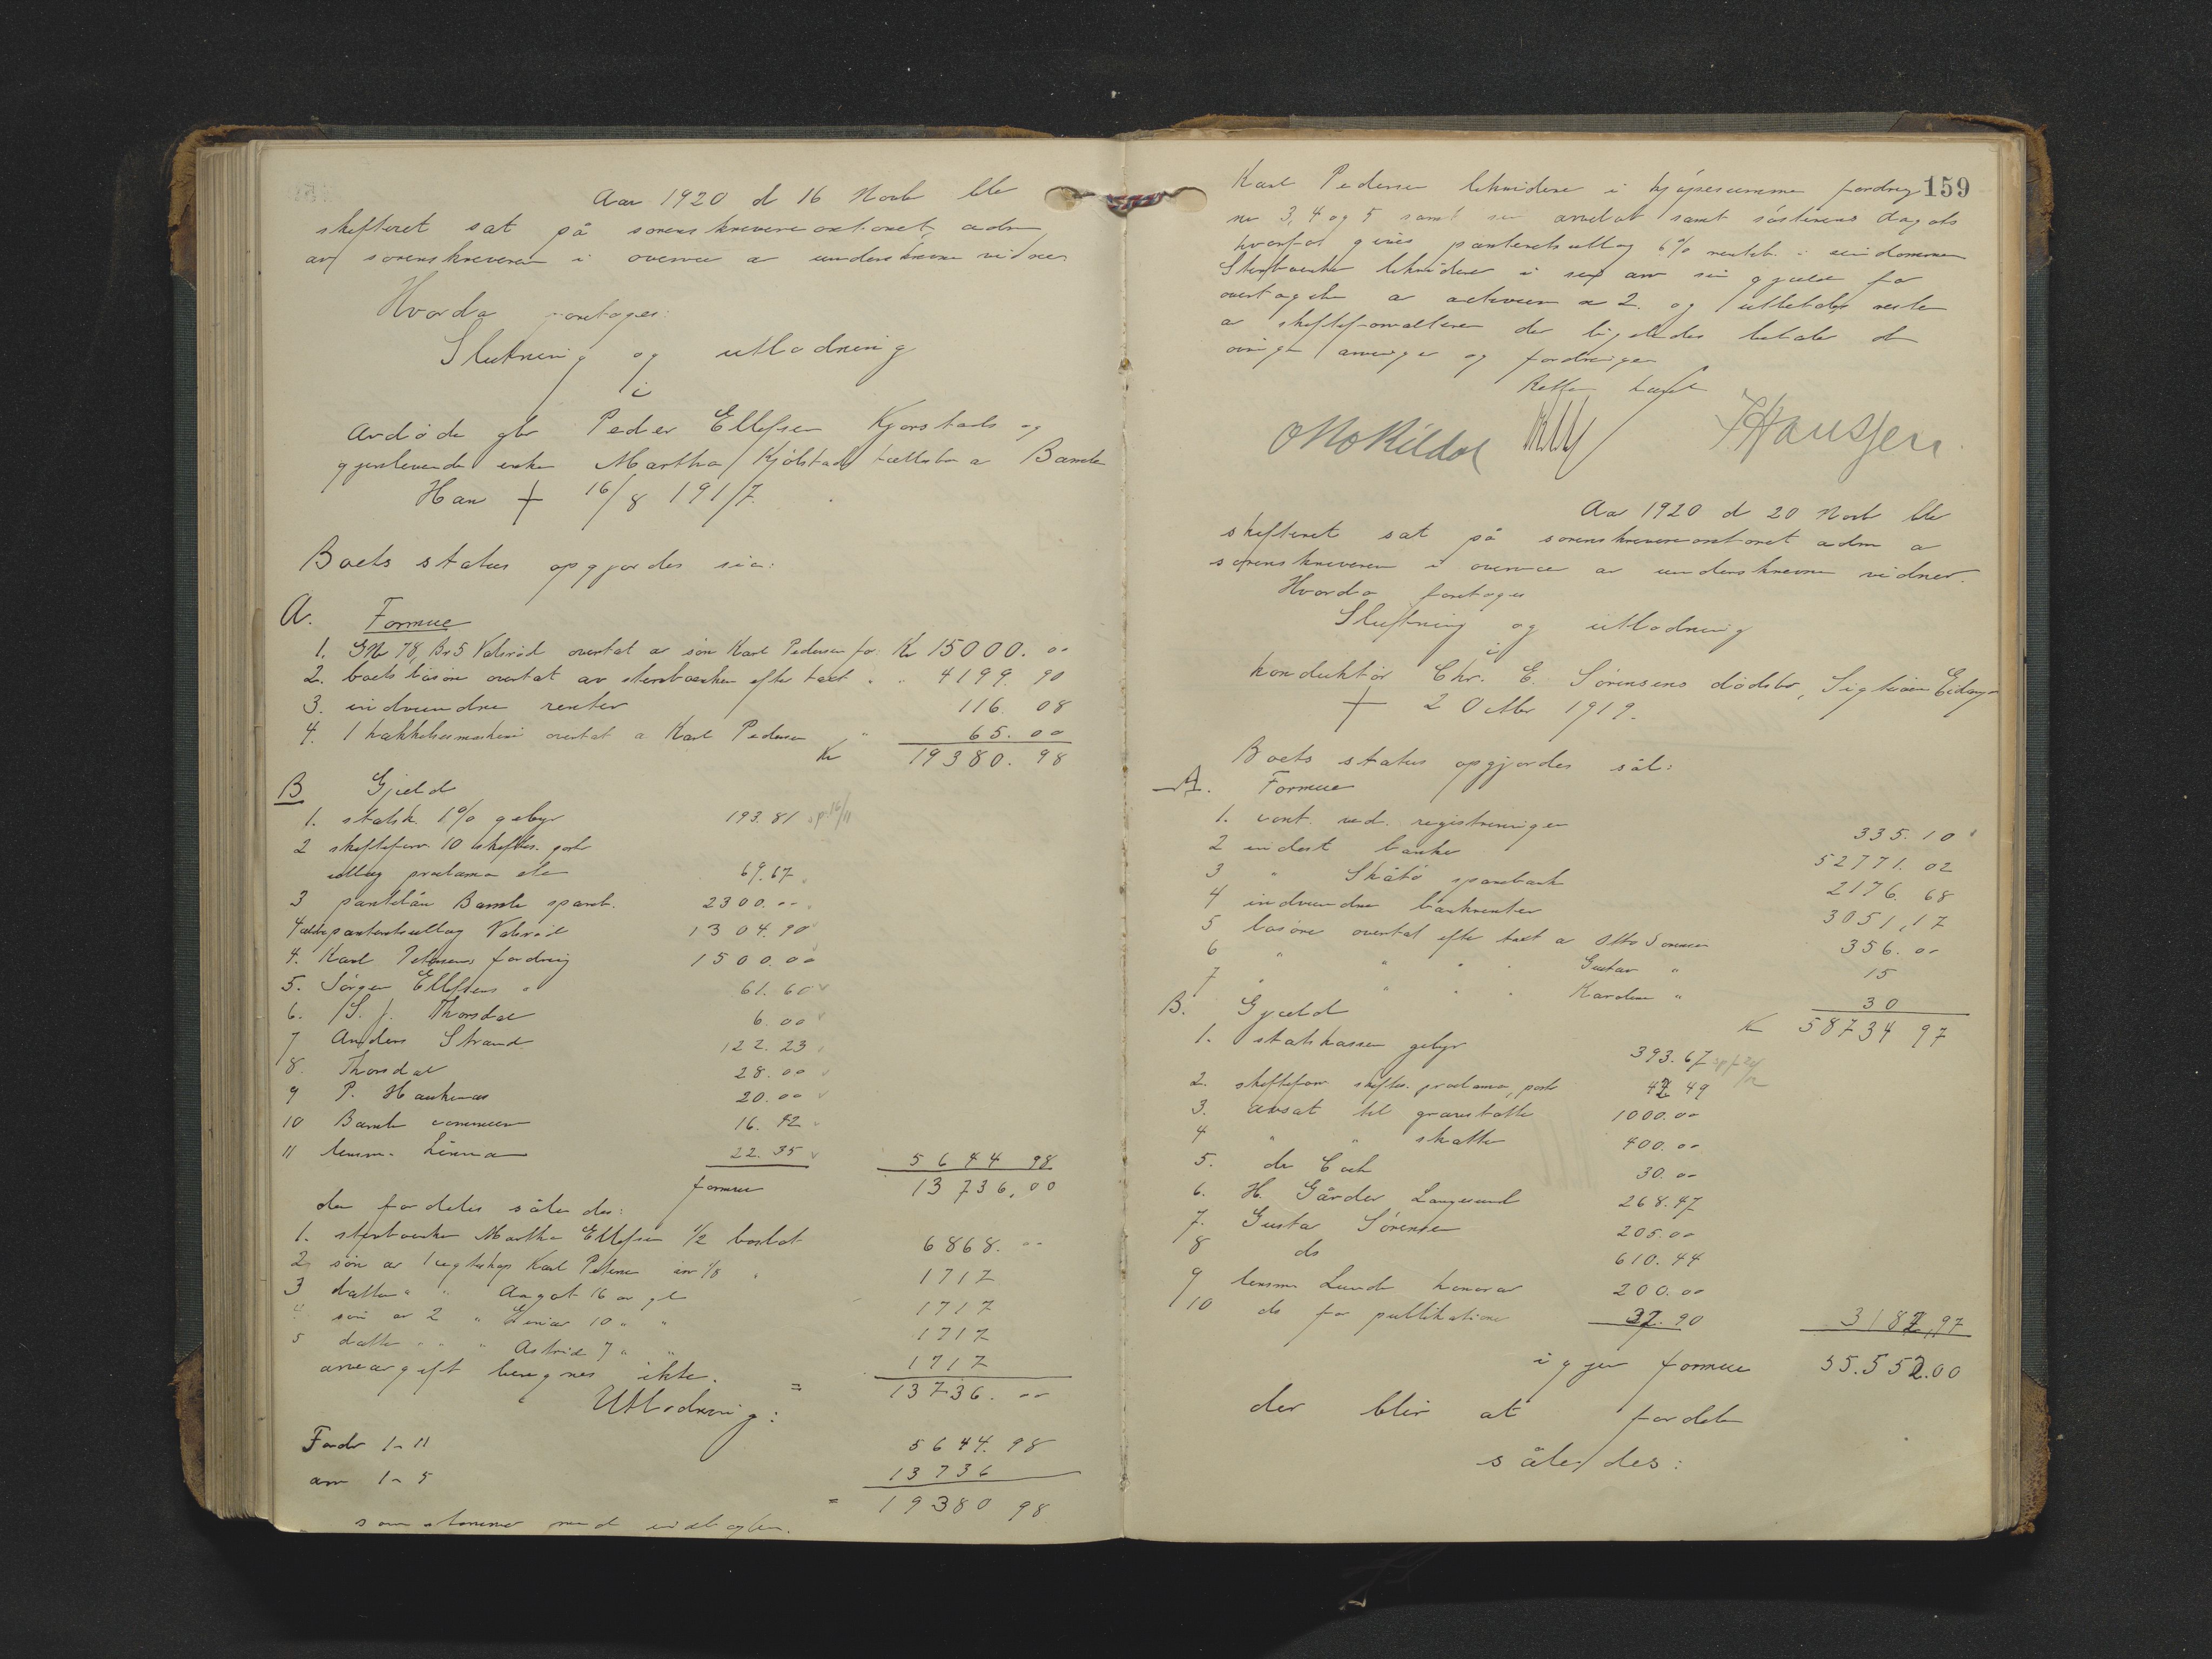 Aar 1920 d 16 Novb ble
skifteret sat på sorenskriverkontoret, adm
av sorenskriveren i overvær av underskrevne vidner
Hvorda foretages:
Slutning og utlodning
i
avdøde gbr Peder Ellefsen Kjørstads og
gjenlevende enke Martha Kjølstads fællesbo a Bamle
Han + 16/8 1917.
Boets status opgjordes sån:
A. Formue
1. GNr 78, Br 5 Valsrød overtat av søn Karl Pedersen for: Kr 15000. 00
2. boets løsøre overtat av sterbоenken efter takst " " 4199. 90
3. indvundne renter 116. 08
4. 1 hakkelsesmaskine overtat a Karl Pedersen " 65. 00
Kr 19380. 98
B Gjæld
1. statsk. 1% gebyr 193. 81 sp 16/11
2 skifteforv. 10 skiftes. porto
utlæg proclama etc 69.67
3 pantelån Bamle spareb. 2300. 00
4 panteretsutlæg Valsrød 1304. 90
4. Karl Pedersens fordring 1500. 00
5. Jørgen Ellefsens " 61. 60
6. S. J. Thorsdal 6. 00
7 Anders Strand 122. 23
8. Thorsdal 28. 00
9 P. Haukenæs 20. 00
10 Bamle commune 16. 42
11 lensm. 22. 35 5644 98
formue 13736,00
der fordeles således:
1. sterboenken Martha Ellefsen 1/2 boslod 6868. 00
2. søn av 1 ægteskap Karl Petersen arv 1/8 " 1717
3 datter " " Aagot 16 år gl 1717
4 søn av 2 " Einar 10 " " 1717
5 datter " " " Astrid 7 " " 1717
arveavgift beregnes ikke. = 13736. 00
Utlodning:
Fordr 1-11 5644. 98
arv 1-5 13736
= 19380 98
som stemmer med indtægten.
159
Karl Pedersen likviderer i kjøpesummen fordring
nr 3, 4 og 5 samt sin arvelod samt søsterens Aagots
hvorfor gives panteretsutlæg 6% renteb. i eiendommen
Sterboenken likviderer i sin arv sin gjæld for
overtagelse a activum a 2. og utbetales resten
a skifteforvalteren der ligeledes betaler de
øvrige arvinger og fordringer
Retten hævet
J Hanssen.
Aar 1920 d 20 Novb ble
skifteret sat på sorenskriverkontoret adm a
sorenskriveren i overvær av underskrevne vidner.
Hvorda foretages
Slutning og utlodning
i
konduktør Chr. E. Sørensens dødsbo, Eidanger
+ 2 Octbr 1919.
Boets status opgjordes sål:
A. Formue
1. cont. ved. registreringen 335. 10
2 indest banker 52771. 02
3 " Skåtø sparebank 2176. 68
4 indvundne bankrenter 3051,17
5 løsøre overtat efter takst a Otto Sørensen 356. 00
6 " " " " Gustav " 15
7 " " " " Karoline " 30
Kr 58734 97
B. Gjæld
1. statskassen gebyr 393. 67
2. skifteforv skiftes. proclama, porto 42 49
3. avsat til gravstøtte 1000. 00
4 " " skatter 400. 00
5. dr Coch 30. 00
6. H. Gårder Langesund 268. 47
7. Gustav Sørensen 205. 00
8 do 610. 44
9 lensm Lunde honorar 200. 00
10 do for publikationer 32. 90 3182,97
igjen formue 55.552.00
der blir at fordele
således: